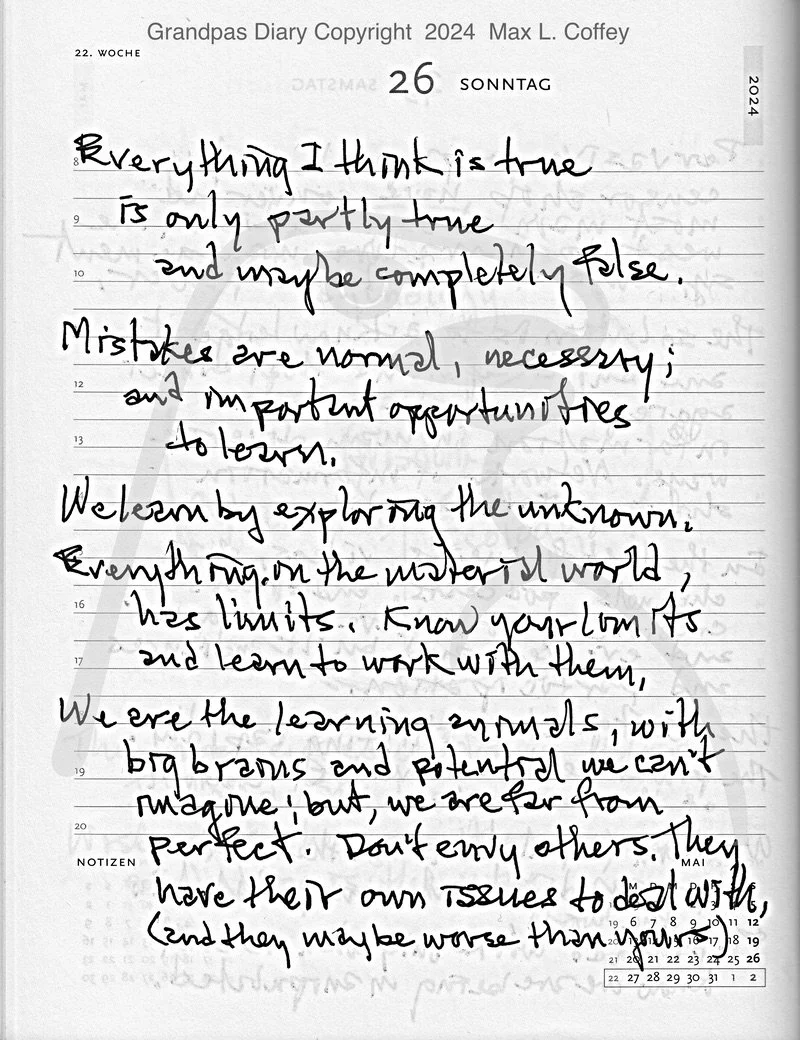 Grandpas Diary Copyright 2024 Max L. Coffey
22. WOCHE
26 SONNTAG
2024
8 Everything I think is true
9 is only partly true
10 and maybe completely false.
Mistakes are normal, necessary;
12 and important opportunities
13 to learn.
We learn by exploring the unknown.
Everything, in the material world,
16 has limits. Know your limits
17 and learn to work with them,
We are the learning animals, with
19 big brains and potential we can't
imagine; but, we are far from
20 perfect. Don't envy others. They
NOTIZEN
MAI
have their own issues to deal with,
(and they maybe worse than yours)
19 6 7 8 9 10 11 12
21 20 21 22 23 24 25 26
22 27 28 29 30 31 1 2